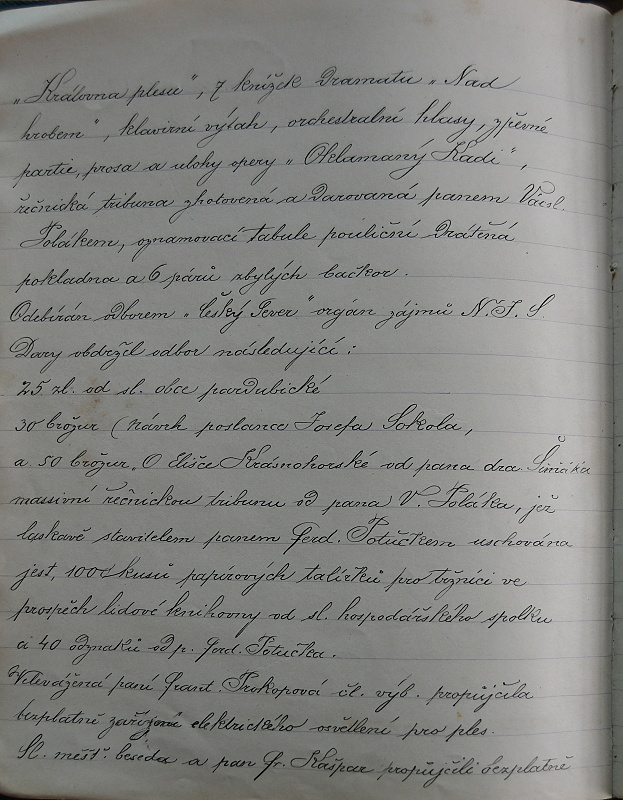 „Královna plesu", 7 knížek dramatu „Nad
hrobem", klavírní výtah, orchestralní hlasy, zpěvné
partie, prosa a ulohy opery „Oklamaný Kadi",
řečnická tribuna zhotovená a darovaná panem Václ.
Polákem, oznamovací tabule pouliční drátěná
pokladna a 6 párů zbylých bačkor.
Odebírán odborem „Český Sever" orgán zájmů N. J. S.
Dary obdržel odbor následující:
25 zl. od sl. obce pardubické
30 brožur (návrh poslance Josefa Sokola,
a 50 brožur „O Elišce Krásnohorské od pana dra. Šimáka
massivní řečnickou tribunu od pana V. Poláka, jež
laskavě stavitelem panem Ferd. Potůčkem uschována
jest, 1000 kusů papírových talířků pro tržnici ve
prospěch lidové knihovny od sl. hospodářského spolku
a 40 odznaků od p. Ferd. Potůčka.
Velevážená paní Frant. Prokopová čl. výb. propůjčila
bezplatně zařízení elektrického osvětlení pro ples.
Sl. měšť. beseda a pan Fr. Kašpar propůjčili bezplatně